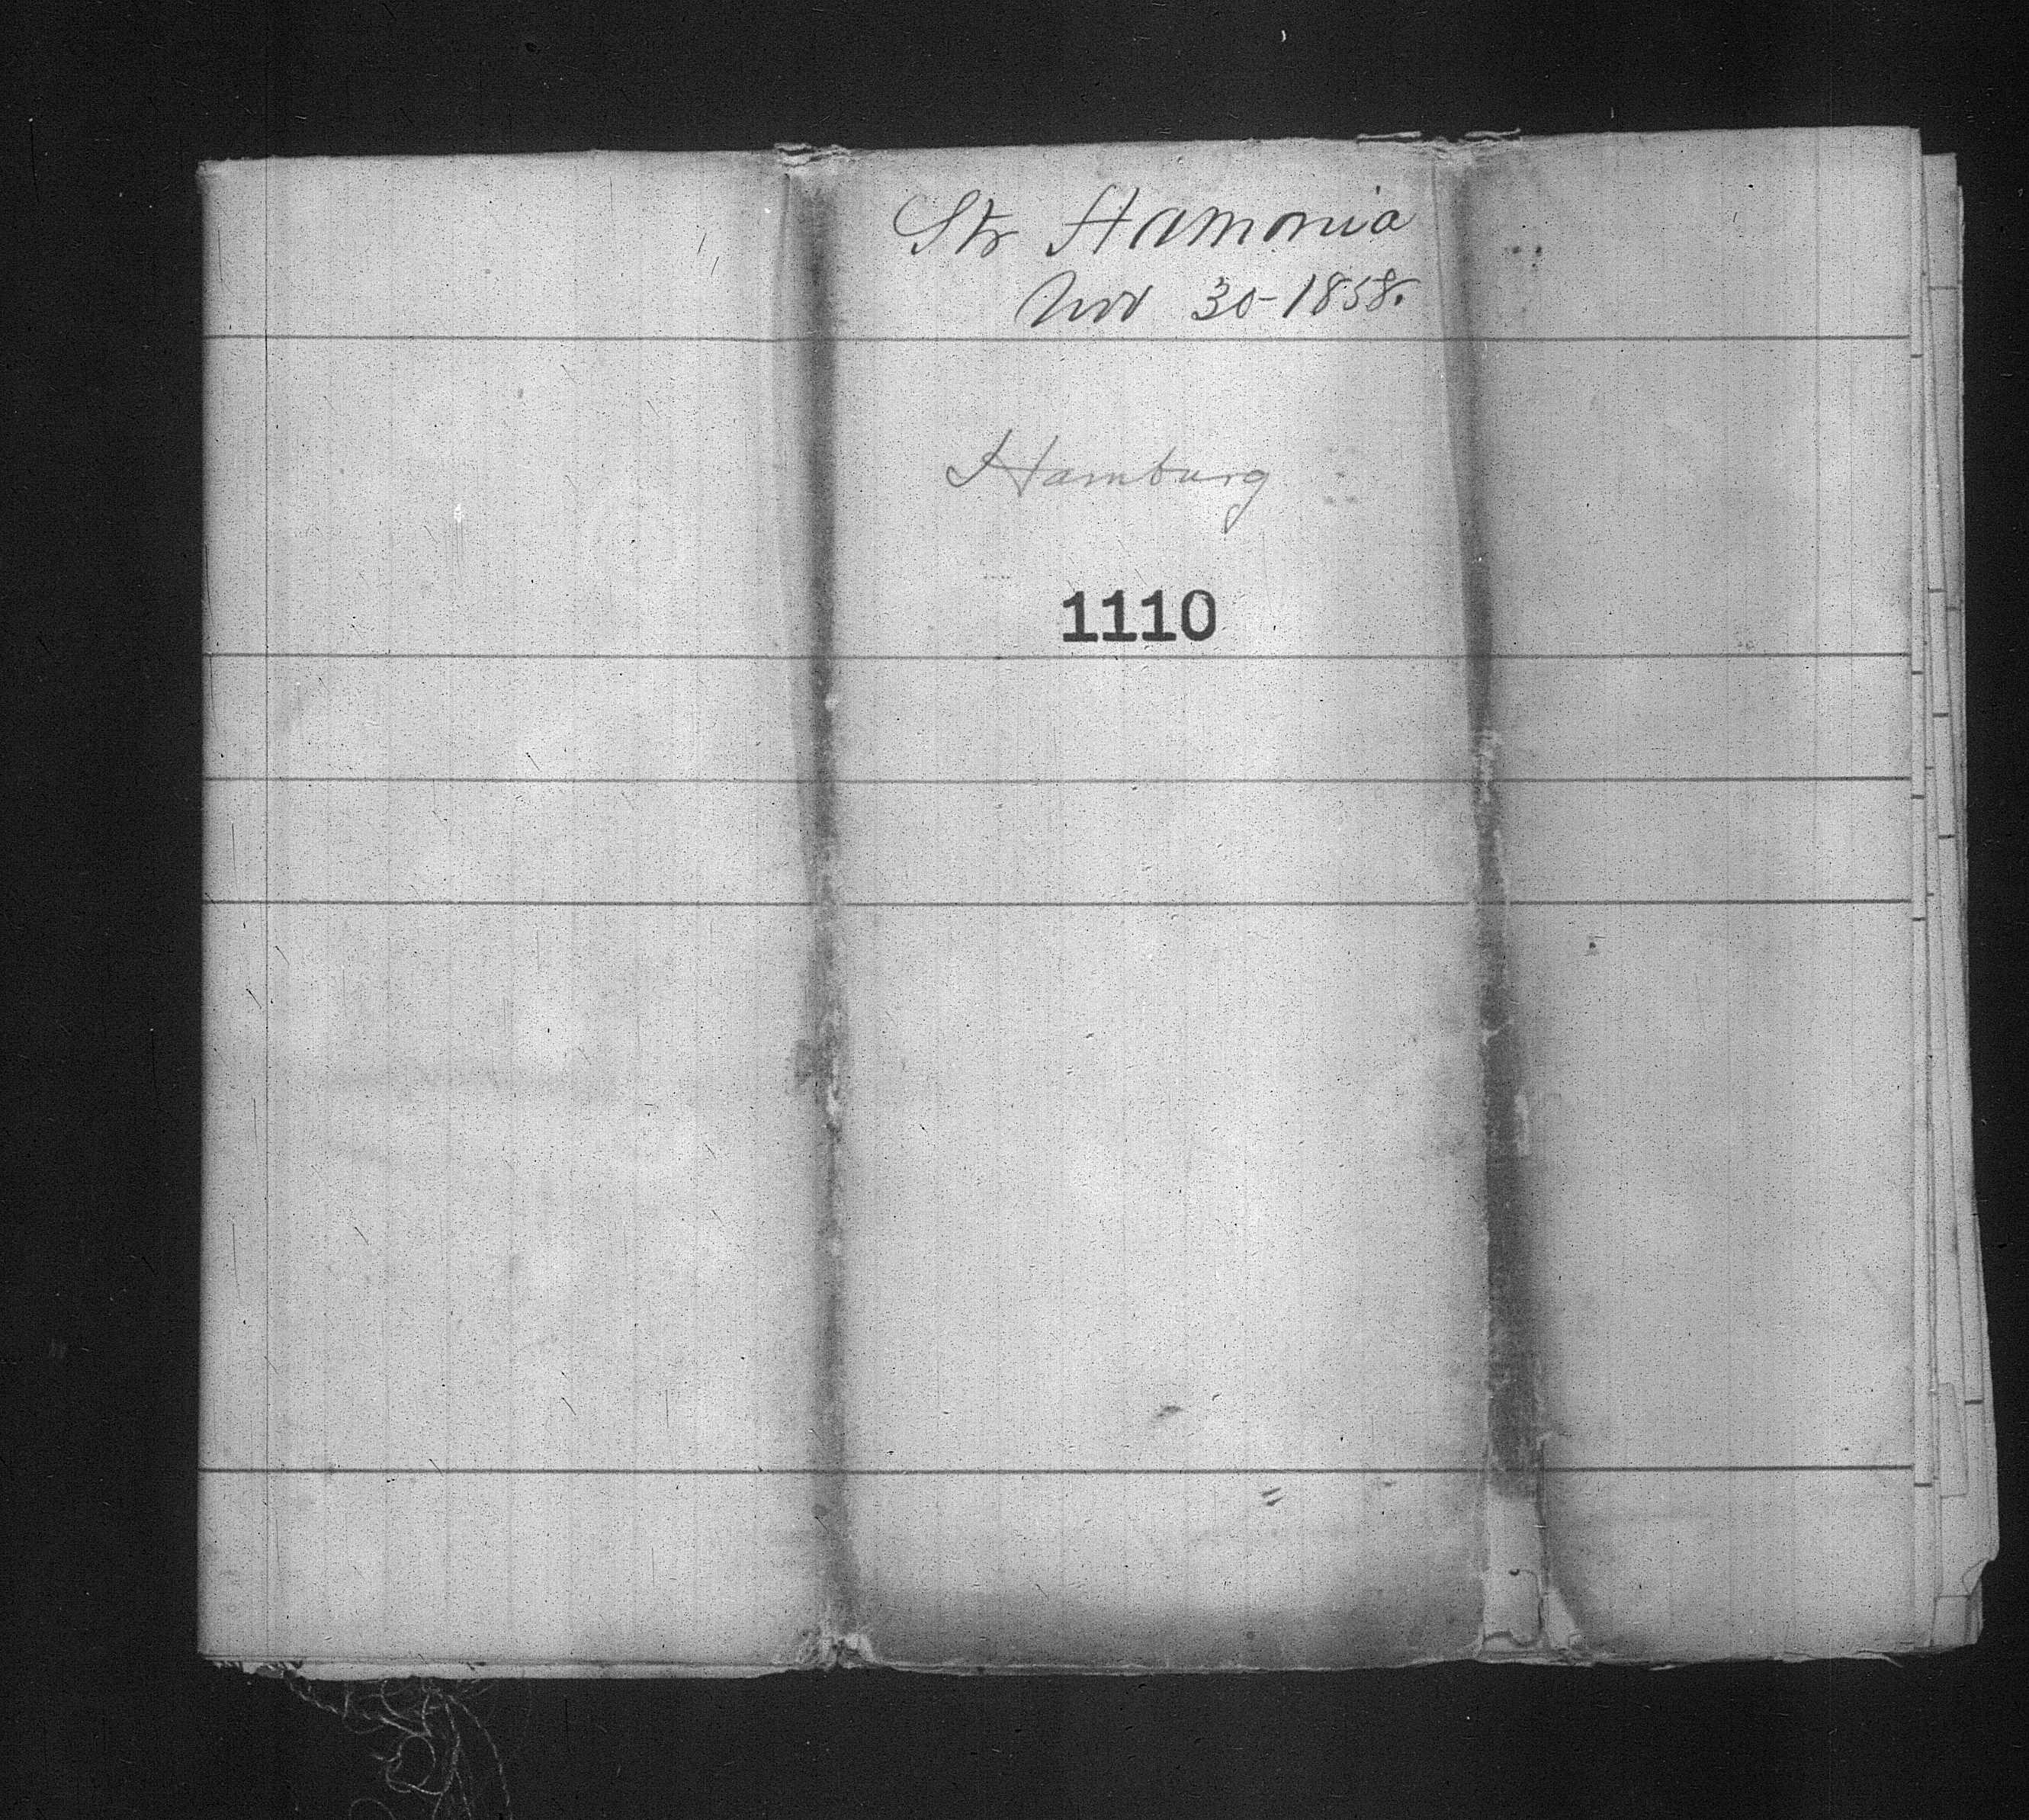 Str Hamonia
Nov 30-1858.
Hamburg
1110